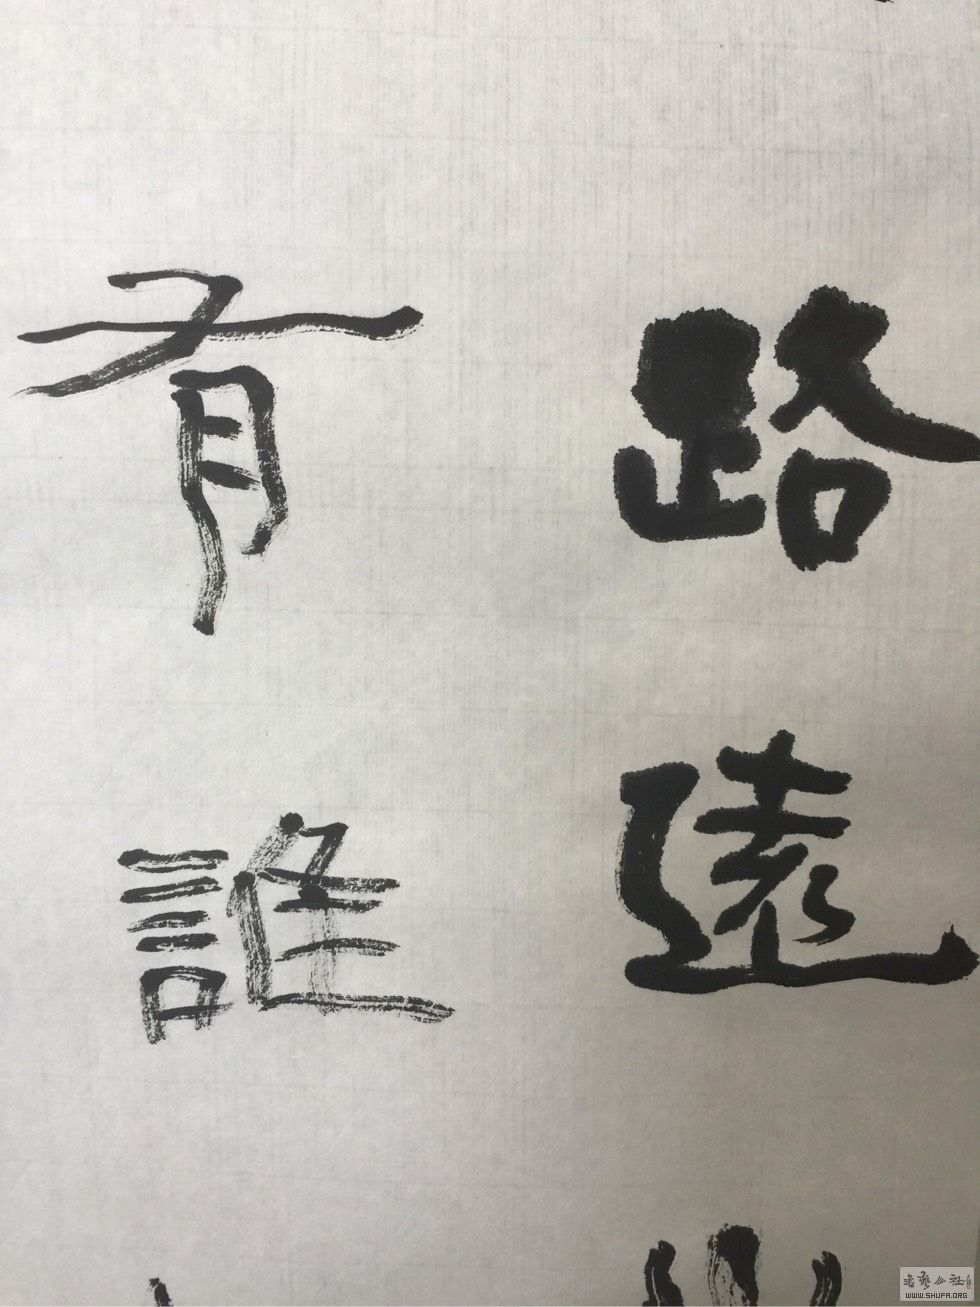 路遠
有誰
書藝公社
WWW.SHUFA.ORG